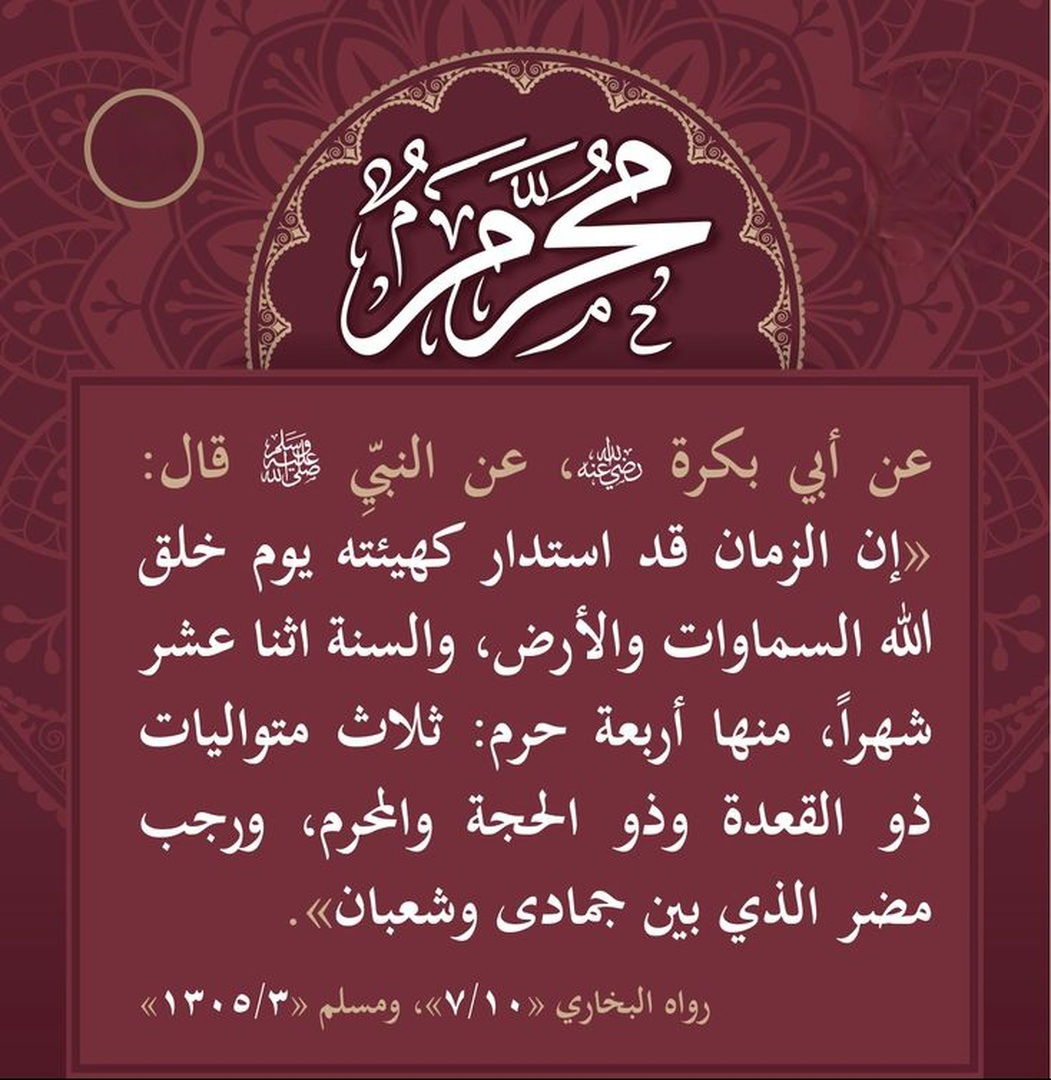 محرم
عن أبي بكرة رضي الله عنه، عن النبيِّ ﷺ قال:
«إن الزمان قد استدار كهيئته يوم خلق
الله السماوات والأرض، والسنة اثنا عشر
شهراً، منها أربعة حرم: ثلاث متواليات
ذو القعدة وذو الحجة والمحرم، ورجب
مضر الذي بين جمادى وشعبان».
رواه البخاري «٧/١٠»، ومسلم «١٣٠٥/٣»